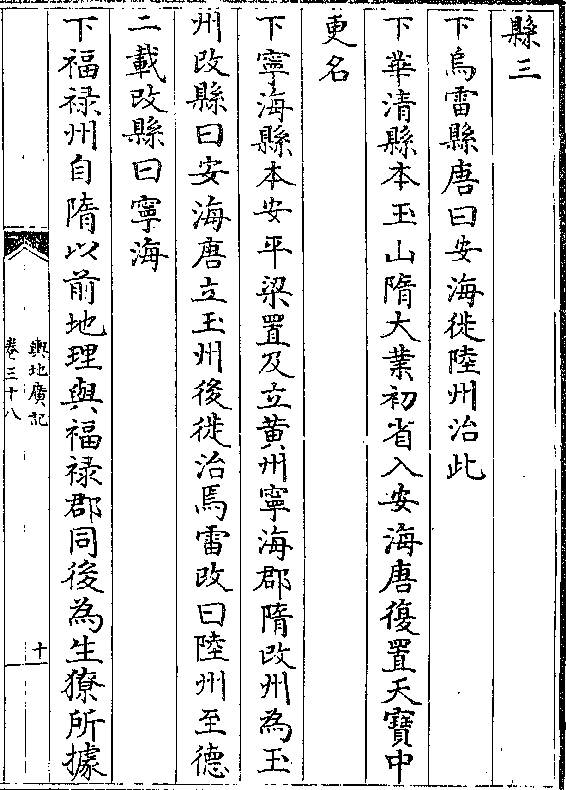 縣三
下烏雷縣唐曰安海徙陸州治此
下華清縣本玉山隋大業初省入安海唐復置天寶中
更名
下寧海縣本安平梁置及立黄州寧海郡隋改州為玉
州改縣曰安海唐立玉州後徙治馬雷改曰陸州至德
二載改縣曰寧海
下福禄州自隋以前地理與福禄郡同後為生獠所據
輿地廣記
卷三十八
十